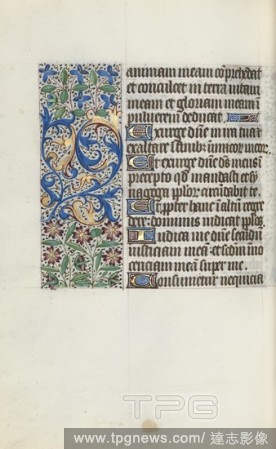 animam meam cōprehēdat
et conculcet in terra uitam
meam et gloriam meam ī
puluerem deducat
Exurge dn̄e in ira tua et
exaltare in finib: inimicor meor.
Et exurge dn̄e ds meus ī
precepto qđ mandasti et sy
nagoga pplor circūdabit te
Et propter hanc ī altū regre
dere: dominus iudicat pplos
Iudica me dn̄e secūdū
iusticiam meā et scdm ino
centiam meā super me.
Consumetur nequicia
TPG
www.tpgnews.com/ 達志影像